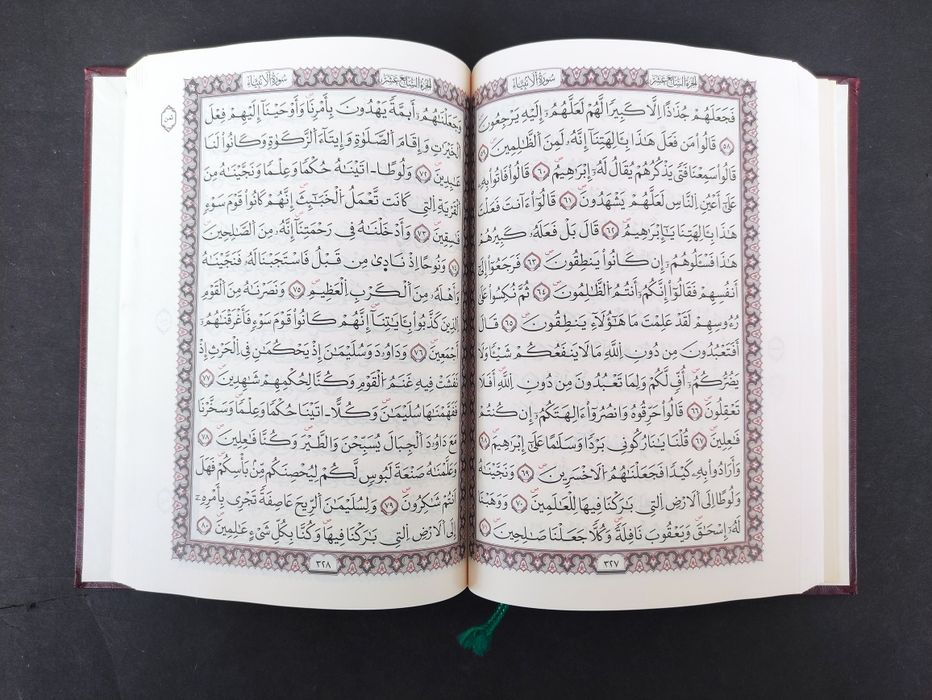 سُورَةُ الأَنبِيَاءِ
الجزء السابع عشر
فَجَعَلَهُمْ جُذَٰذًا اِلَّا كَبِيرًا لَّهُمْ لَعَلَّهُمُۥٓ إِلَيْهِ يَرْجِعُونَ
٥٨ قَالُوا۟ مَن فَعَلَ هَٰذَا بِـَٔالِهَتِنَآ إِنَّهُۥ لَمِنَ ٱلظَّٰلِمِينَ ٥٩
قَالُوا۟ سَمِعْنَا فَتًى يَذْكُرُهُمْ يُقَالُ لَهُۥٓ إِبْرَٰهِيمُ ٦٠ قَالُوا۟ فَاتُوا۟ بِهِۦ
عَلَىٰٓ أَعْيُنِ ٱلنَّاسِ لَعَلَّهُمْ يَشْهَدُونَ ٦١ قَالُوٓا۟ ءَآنتَ فَعَلْتَ
هَٰذَا بِـَٔالِهَتِنَا يَٰٓإِبْرَٰهِيمُ ٦٢ قَالَ بَلْ فَعَلَهُۥ كَبِيرُهُمْ
هَٰذَا فَسْـَٔلُوهُمُۥٓ إِن كَانُوا۟ يَنطِقُونَ ٦٣ فَرَجَعُوٓا۟ إِلَىٰٓ
أَنفُسِهِمْ فَقَالُوٓا۟ إِنَّكُمُۥٓ أَنتُمُ ٱلظَّٰلِمُونَ ٦٤ ثُمَّ نُكِسُوا۟ عَلَىٰ
رُءُوسِهِمْ لَقَدْ عَلِمْتَ مَا هَٰٓؤُلَآءِ يَنطِقُونَ ٦٥ قَالَ
أَفَتَعْبُدُونَ مِن دُونِ ٱللَّهِ مَا لَا يَنفَعُكُمْ شَيْـًٔا وَلَا
يَضُرُّكُمُۥٓ أُفٍّ لَّكُمْ وَلِمَا تَعْبُدُونَ مِن دُونِ ٱللَّهِ أَفَلَا
تَعْقِلُونَ ٦٦ قَالُوا۟ حَرِّقُوهُ وَانصُرُوٓا۟ ءَالِهَتَكُمُۥٓ إِن كُنتُمْ
فَٰعِلِينَ ٦٧ قُلْنَا يَٰنَارُ كُونِى بَرْدًا وَسَلَٰمًا عَلَىٰٓ إِبْرَٰهِيمَ ٦٨
وَأَرَادُوا۟ بِهِۦ كَيْدًا فَجَعَلْنَٰهُمُ ٱلَاخْسَرِينَ ٦٩ وَنَجَّيْنَٰهُ
وَلُوطًا اِلَى ٱلَارْضِ ٱلتِى بَٰرَكْنَا فِيهَا لِلْعَٰلَمِينَ ٧٠ وَوَهَبْنَا
لَهُۥٓ إِسْحَٰقَ وَيَعْقُوبَ نَافِلَةً وَكُلًّا جَعَلْنَا صَٰلِحِينَ ٧١
٣٢٧
سُورَةُ الأَنبِيَاءِ
الجزء السابع عشر
وَجَعَلْنَٰهُمُۥٓ أَيِمَّةً يَهْدُونَ بِأَمْرِنَا وَأَوْحَيْنَآ إِلَيْهِمْ فِعْلَ
ٱلْخَيْرَٰتِ وَإِقَامَ ٱلصَّلَوٰةِ وَإِيتَآءَ ٱلزَّكَوٰةِ وَكَانُوا۟ لَنَا
عَٰبِدِينَ ٧٢ وَلُوطًا ـاتَيْنَٰهُ حُكْمًا وَعِلْمًا وَنَجَّيْنَٰهُ مِنَ
ٱلْقَرْيَةِ ٱلتِى كَانَت تَّعْمَلُ ٱلْخَبَٰٓئِثَ إِنَّهُمْ كَانُوا۟ قَوْمَ سَوْءٍ
فَٰسِقِينَ ٧٣ وَأَدْخَلْنَٰهُ فِى رَحْمَتِنَآ إِنَّهُۥ مِنَ ٱلصَّٰلِحِينَ
٧٤ وَنُوحًا اِذْ نَادَىٰ مِن قَبْلُ فَاسْتَجَبْنَا لَهُۥ فَنَجَّيْنَٰهُ
وَأَهْلَهُۥ مِنَ ٱلْكَرْبِ ٱلْعَظِيمِ ٧٥ وَنَصَرْنَٰهُ مِنَ ٱلْقَوْمِ
ٱلذِينَ كَذَّبُوا۟ بِـَٔايَٰتِنَآ إِنَّهُمْ كَانُوا۟ قَوْمَ سَوْءٍ فَأَغْرَقْنَٰهُمُۥٓ
أَجْمَعِينَ ٧٦ وَدَاوُۥدَ وَسُلَيْمَٰنَ إِذْ يَحْكُمَٰنِ فِى ٱلْحَرْثِ إِذْ
نَفَشَتْ فِيهِ غَنَمُ ٱلْقَوْمِ وَكُنَّا لِحُكْمِهِمْ شَٰهِدِينَ ٧٧
فَفَهَّمْنَٰهَا سُلَيْمَٰنَ وَكُلًّا ـاتَيْنَا حُكْمًا وَعِلْمًا وَسَخَّرْنَا
مَعَ دَاوُۥدَ ٱلْجِبَالَ يُسَبِّحْنَ وَالطَّيْرَ وَكُنَّا فَٰعِلِينَ ٧٨
وَعَلَّمْنَٰهُ صَنْعَةَ لَبُوسٍ لَّكُمْ لِيُحْصِنَكُم مِّنۢ بَأْسِكُمْ فَهَلَ
اَنتُمْ شَٰكِرُونَ ٧٩ وَلِسُلَيْمَٰنَ ٱلرِّيحَ عَاصِفَةً تَجْرِى بِأَمْرِهِۦٓ
إِلَى ٱلَارْضِ ٱلتِى بَٰرَكْنَا فِيهَا وَكُنَّا بِكُلِّ شَىْءٍ عَٰلِمِينَ ٨٠
٣٢٨